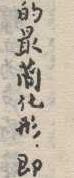 的最简化形.即